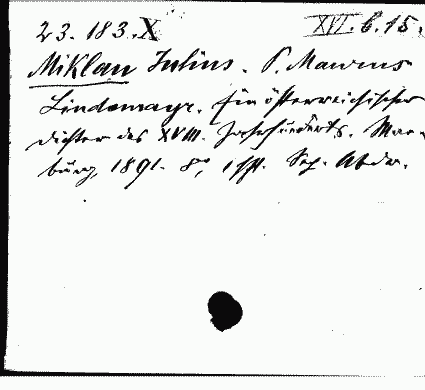 23.183.X XVI.b.15.
Miklau Julius. P. Maurus
Lindemayr. Ein österreichischer
Dichter des XVIII. Jahrhunderts. Mar-
burg, 1891. 8°, Sep. Abdr.